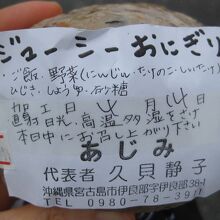 ジューシーおにぎり
ご飯、野菜(にんじん・たけのこ・しいたけ)
ひじき・しょうゆ・砂糖
加工日 4月14日
直射日光、高温多湿をさけ
本日中にお召し上がり下さい
あじみ
代表者 久貝静子
沖縄県宮古島市伊良部字伊良部381
TEL 0980-78-39